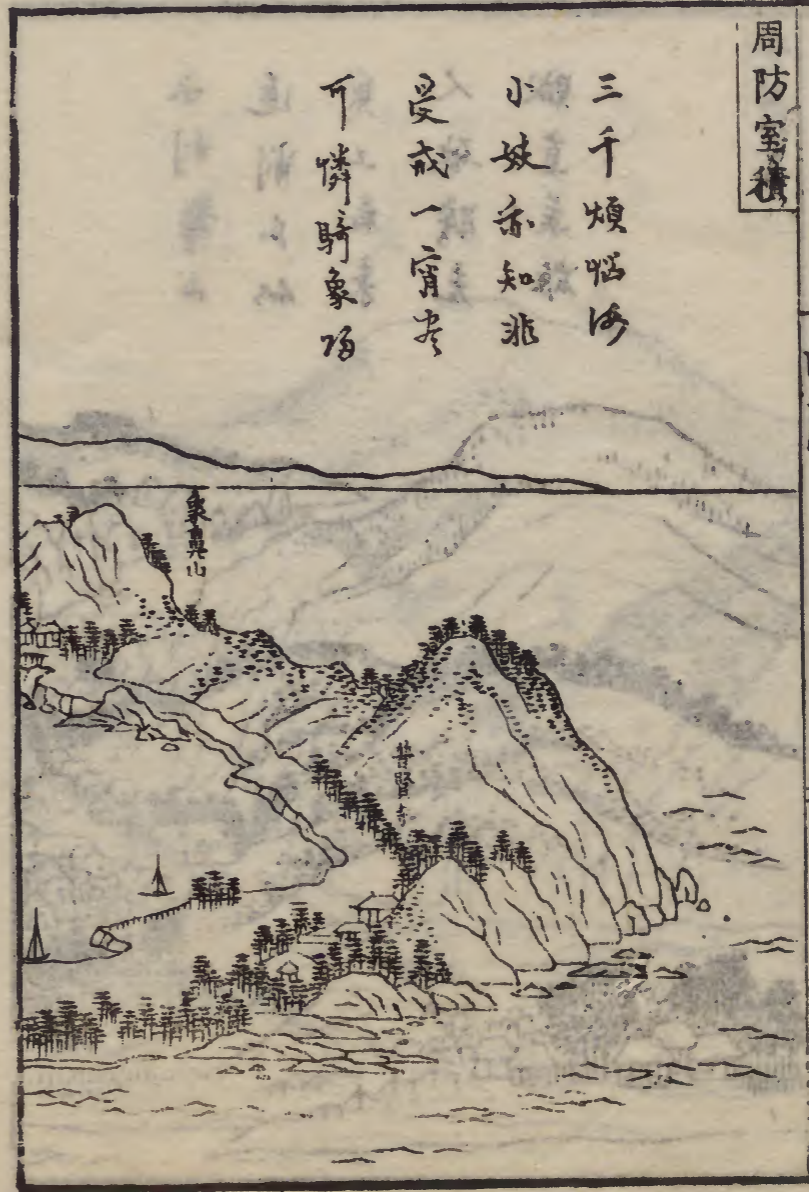 周防室積
三千煩悩海
小妓亦知非
受戒一宵尽
可憐騎象帰
象鼻山
普賢寺